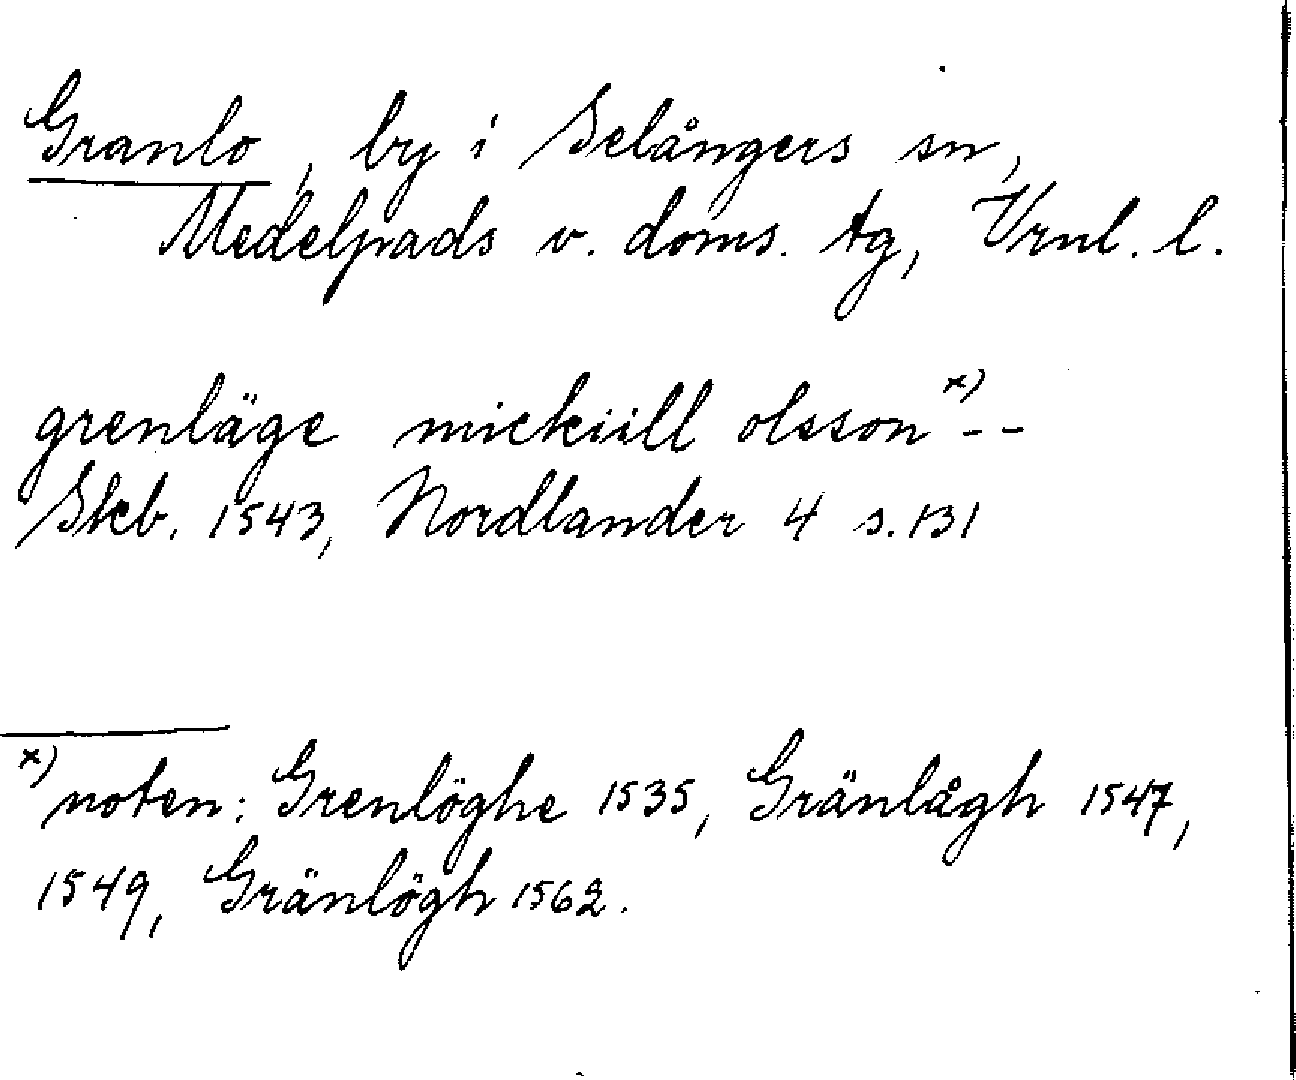 Granlo, by i Selångers sn,
Medelpads v. doms. tg, Vrnl. l.
grenläge mickiill olsson x) - -
Skb. 1543, Nordlander 4 s. 131
x) noten: Grenlöghe 1535, Gränlågh 1547,
1549, Gränlögh 1562.